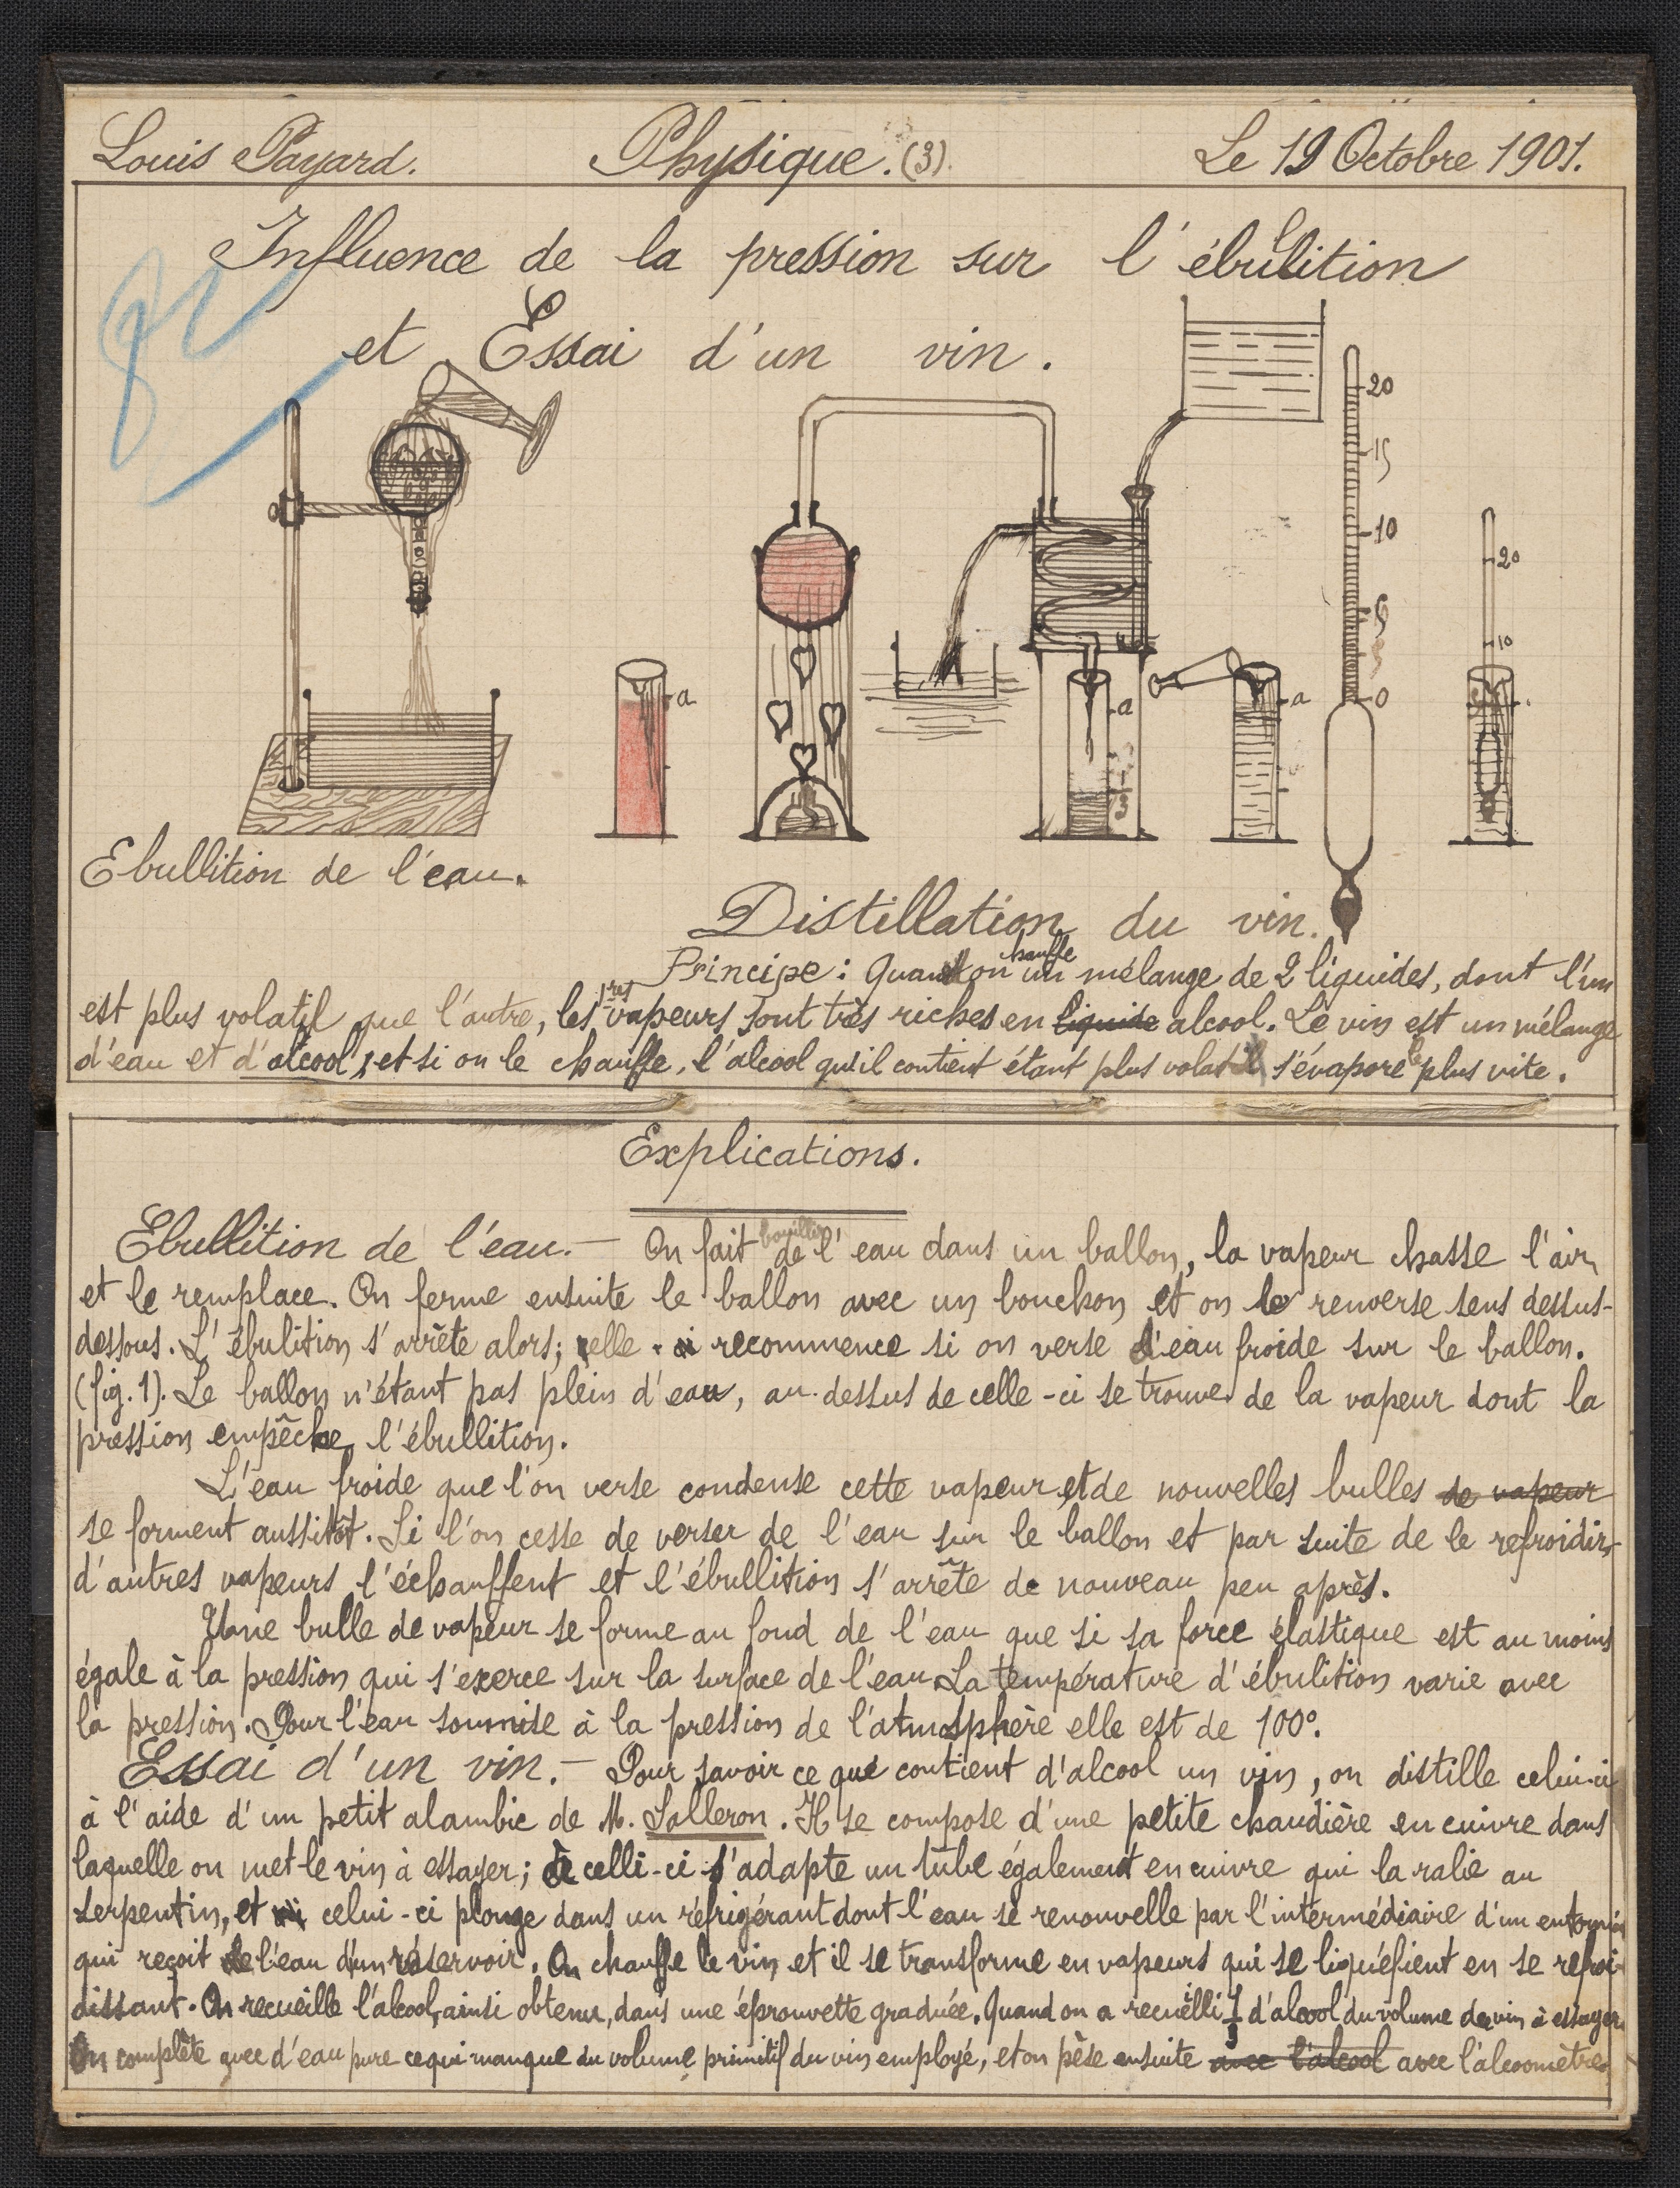 Louis Payard. Physique. (3). Le 19 Octobre 1901.
Influence de la pression sur l'ébullition
et Essai d'un vin.
20
15
10
5
0
20
10
a
a
a
1/3
Ebullition de l'eau.
Distillation du vin.
chauffe
Principe : Quand on un mélange de 2 liquides, dont l'un
est plus volatil que l'autre, les 1res vapeurs sont très riches en liquide alcool. Le vin est un mélange
d'eau et d'alcool, et si on le chauffe, l'alcool qu'il contient étant plus volatil s'évapore le plus vite.
Explications.
Ebullition de l'eau. — On fait bouillir de l'eau dans un ballon, la vapeur chasse l'air
et le remplace. On ferme ensuite le ballon avec un bouchon et on le renverse sens dessus-
dessous. L'ébulition s'arrête alors; celle-ci recommence si on verse d'eau froide sur le ballon.
(fig. 1). Le ballon n'étant pas plein d'eau, au-dessus de celle-ci se trouve de la vapeur dont la
pression empêche l'ébullition.
L'eau froide que l'on verse condense cette vapeur et de nouvelles bulles de vapeur
se forment aussitôt. Si l'on cesse de verser de l'eau sur le ballon et par suite de le refroidir,
d'autres vapeurs s'échauffent et l'ébullition s'arrête de nouveau peu après.
Une bulle de vapeur se forme au fond de l'eau que si sa force élastique est au moins
égale à la pression qui s'exerce sur la surface de l'eau. La température d'ébulition varie avec
la pression. Pour l'eau soumise à la pression de l'atmosphère elle est de 100°.
Essai d'un vin. — Pour savoir ce que contient d'alcool un vin, on distille celui-ci
à l'aide d'un petit alambic de M. Salleron. Il se compose d'une petite chaudière en cuivre dans
laquelle on met le vin à essayer; à celli-ci s'adapte un tube également en cuivre qui la ralie au
serpentin, et celui-ci plonge dans un réfrigérant dont l'eau se renouvelle par l'intermédiaire d'un entonnoir
qui reçoit de l'eau d'un réservoir. On chauffe le vin et il se transforme en vapeurs qui se liquéfient en se refroi-
dissant. On recueille l'alcool, ainsi obtenu, dans une éprouvette graduée. Quand on a recueilli 1/3 d'alcool du volume de vin à essayer
On complète avec d'eau pure ce qui manque du volume primitif du vin employé, et on pèse ensuite avec l'alcool avec l'alcoomètre